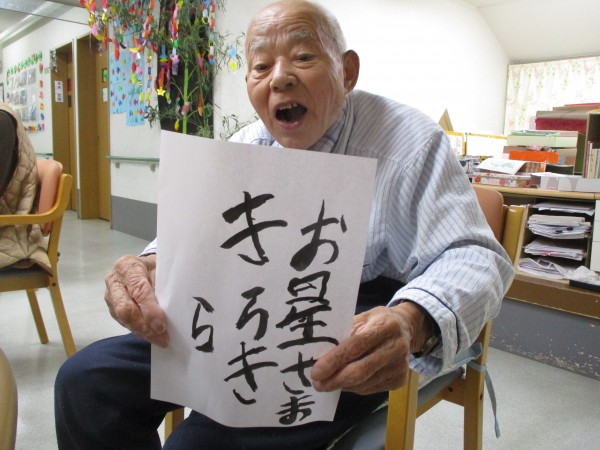 お星さま
きらき
ら